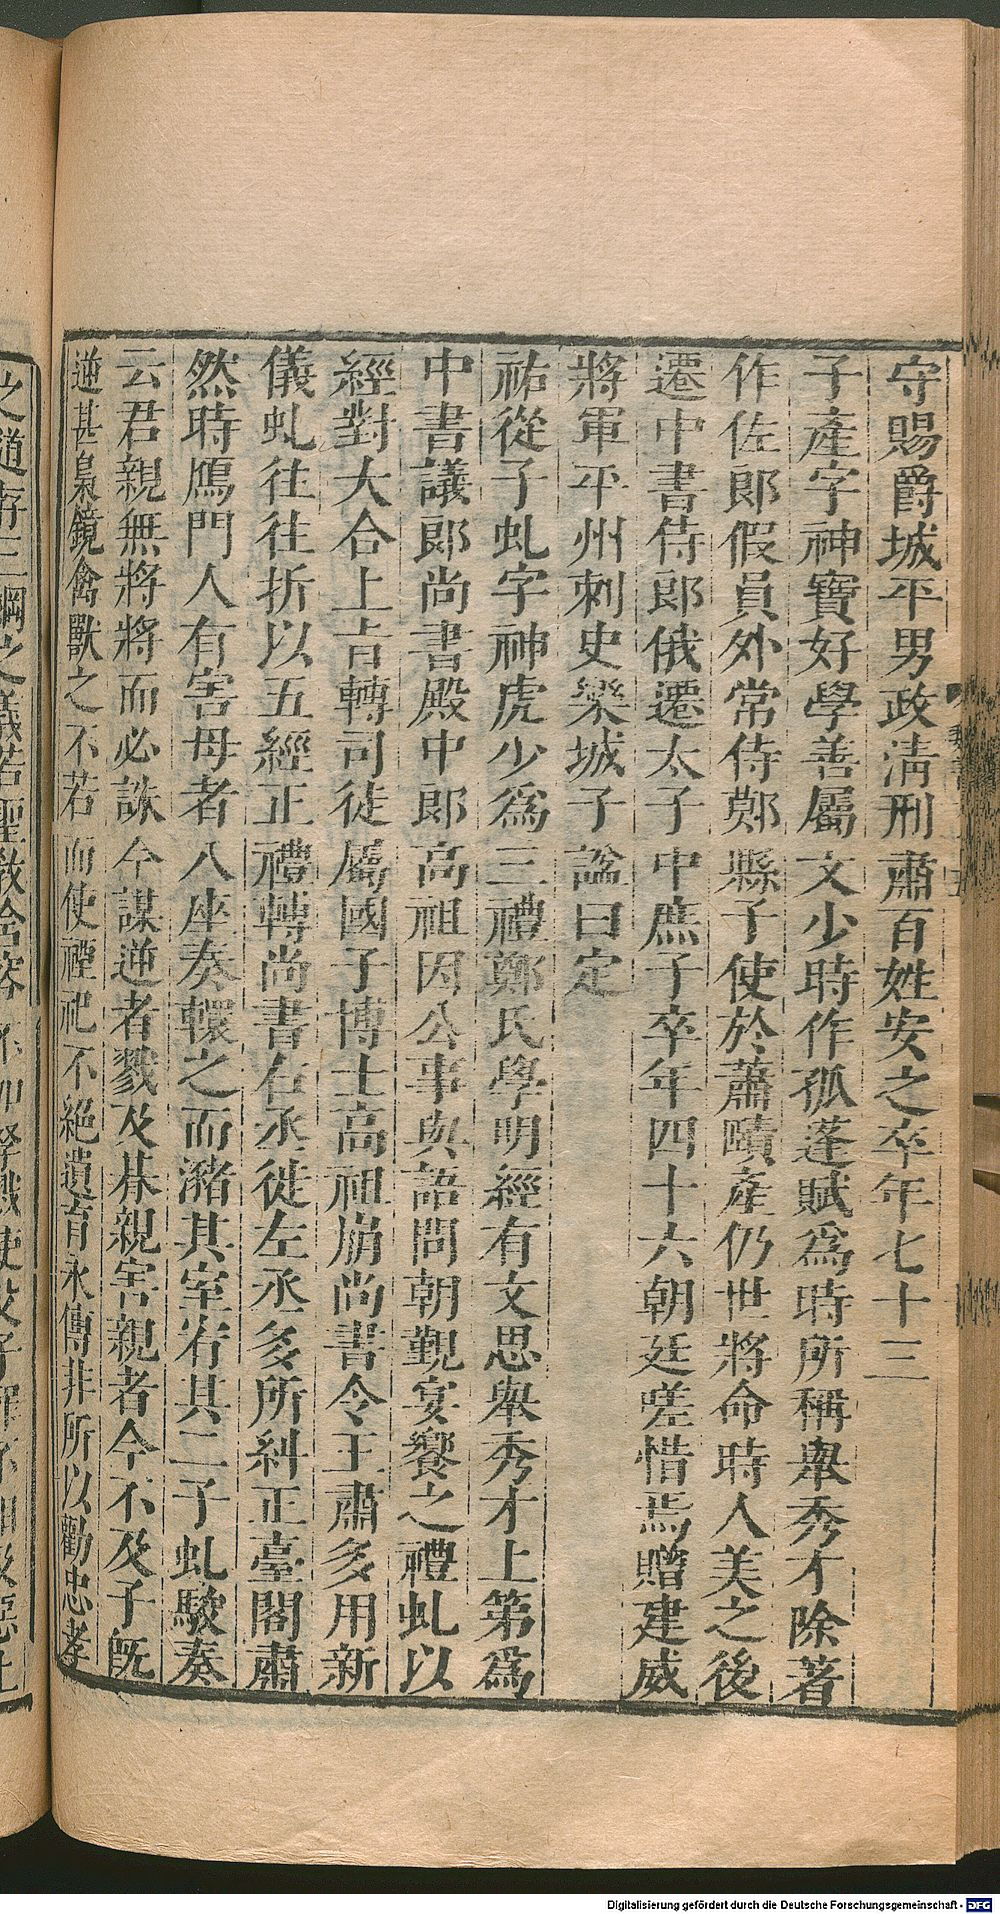 守賜爵城平男政淸刑肅百姓安之卒年七十三
子產字神寶好學善屬文少時作孤蓬賦爲時所稱舉秀才除著
作佐郎假員外常侍鄭縣子使於蕭賾產仍世將命時人美之後
遷中書侍郎俄遷太子中庶子卒年四十六朝廷嗟惜焉贈建威
將軍平州刺史樂城子諡曰定
祐從子虬字神虎少爲三禮鄭氏學明經有文思舉秀才上第爲
中書議郎尚書殿中郎高祖因公事與語問朝覲宴饗之禮虬以
經對大合上旨轉司徒屬國子博士高祖崩尚書令王肅多用新
儀虬往往折以五經正禮轉尚書右丞徙左丞多所糾正臺閣肅
然時鴈門人有害母者八座奏轘之而瀦其室宥其二子虬駮奏
云君親無將將而必誅今謀逆者戮及朞親害親者今不及子旣
逆甚梟鏡禽獸之不若而使禋祀不絕遺育永傳非所以勸忠孝
之道存三綱之義若聖教含容不加孥戮使父子罪不相及惡止
Digitalisierung gefördert durch die Deutsche Forschungsgemeinschaft - DFG